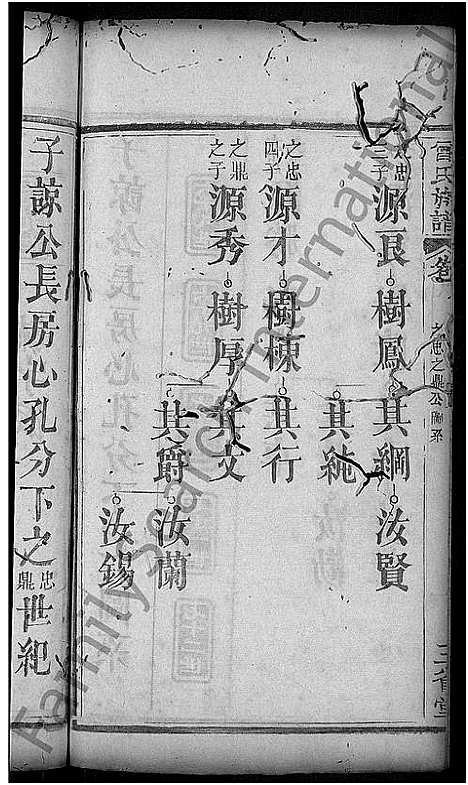 曾氏族譜
卷
之忠之鼎公圖系
三省堂
之忠三子
源良
樹鳳
其綱
汝賢
其純
之忠四子
源才
樹棟
其行
之鼎之子
源秀
樹厚
其文
其爵
汝蘭
汝錫
子諒公長房心孔分下之忠鼎世紀
FamilySearch International